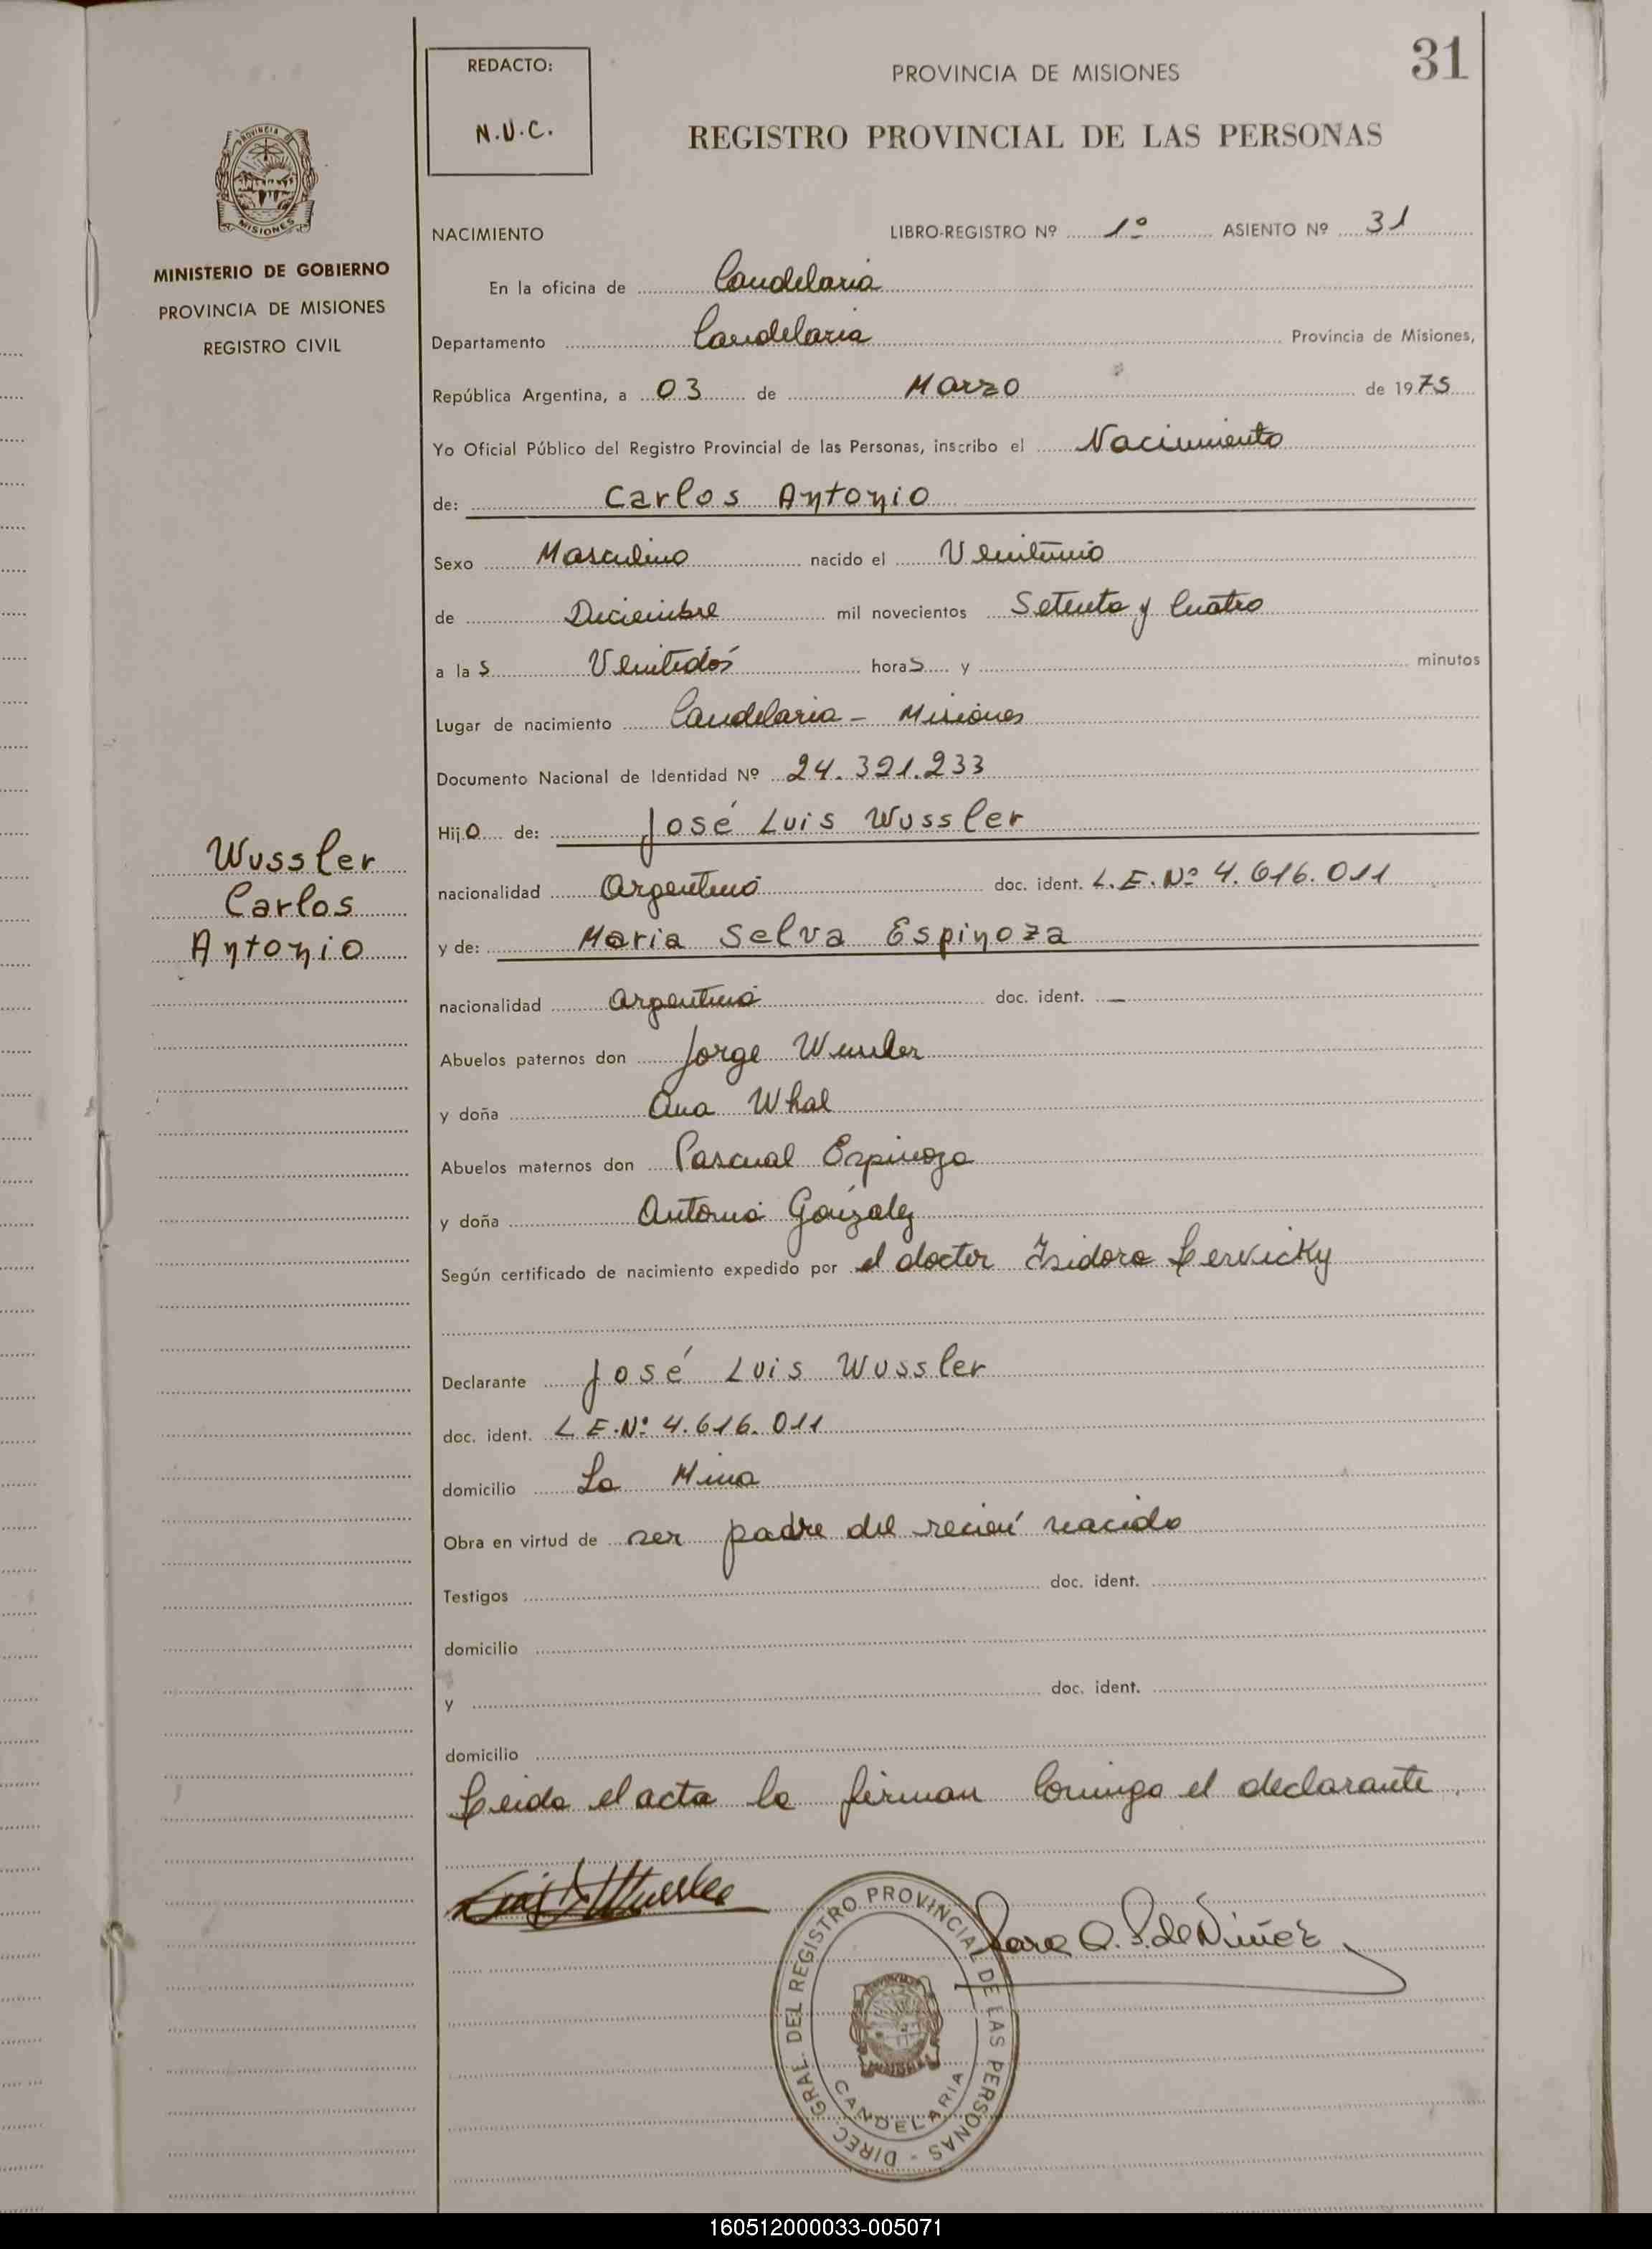 31
REDACTO:
N.U.C.
PROVINCIA DE MISIONES
REGISTRO PROVINCIAL DE LAS PERSONAS
PROVINCIA DE
MISIONES
MINISTERIO DE GOBIERNO
PROVINCIA DE MISIONES
REGISTRO CIVIL
NACIMIENTO LIBRO-REGISTRO Nº 1º ASIENTO Nº 31
En la oficina de Candelaria
Departamento Candelaria Provincia de Misiones,
República Argentina, a 03 de Marzo de 1975
Yo Oficial Público del Registro Provincial de las Personas, inscribo el Nacimiento
de: Carlos Antonio
Sexo Masculino nacido el
de Diciembre mil novecientos Setenta y Cuatro
a las Veintidós horas y minutos
Lugar de nacimiento Candelaria - Misiones
Documento Nacional de Identidad Nº 24.321.233
Hijo de: José Luis Wussler
nacionalidad Argentina doc. ident. L.E.Nº 4.616.011
y de: Maria Selva Espinoza
nacionalidad Argentina doc. ident. —
Abuelos paternos don Jorge Wussler
y doña Ana Whal
Abuelos maternos don Pascual Espinoza
y doña Antonia González
Según certificado de nacimiento expedido por el doctor Isidoro
Declarante José Luis Wussler
doc. ident. L.E.Nº 4.616.011
domicilio La Mina
Obra en virtud de ser padre del recién nacido
Testigos doc. ident.
domicilio
y doc. ident.
domicilio
Leida el acta la firman Conmigo el declarante.
Wussler
Carlos
Antonio
DIREC. GRAL. DEL REGISTRO PROVINCIAL DE LAS PERSONAS -
CANDELARIA
160512000033-005071